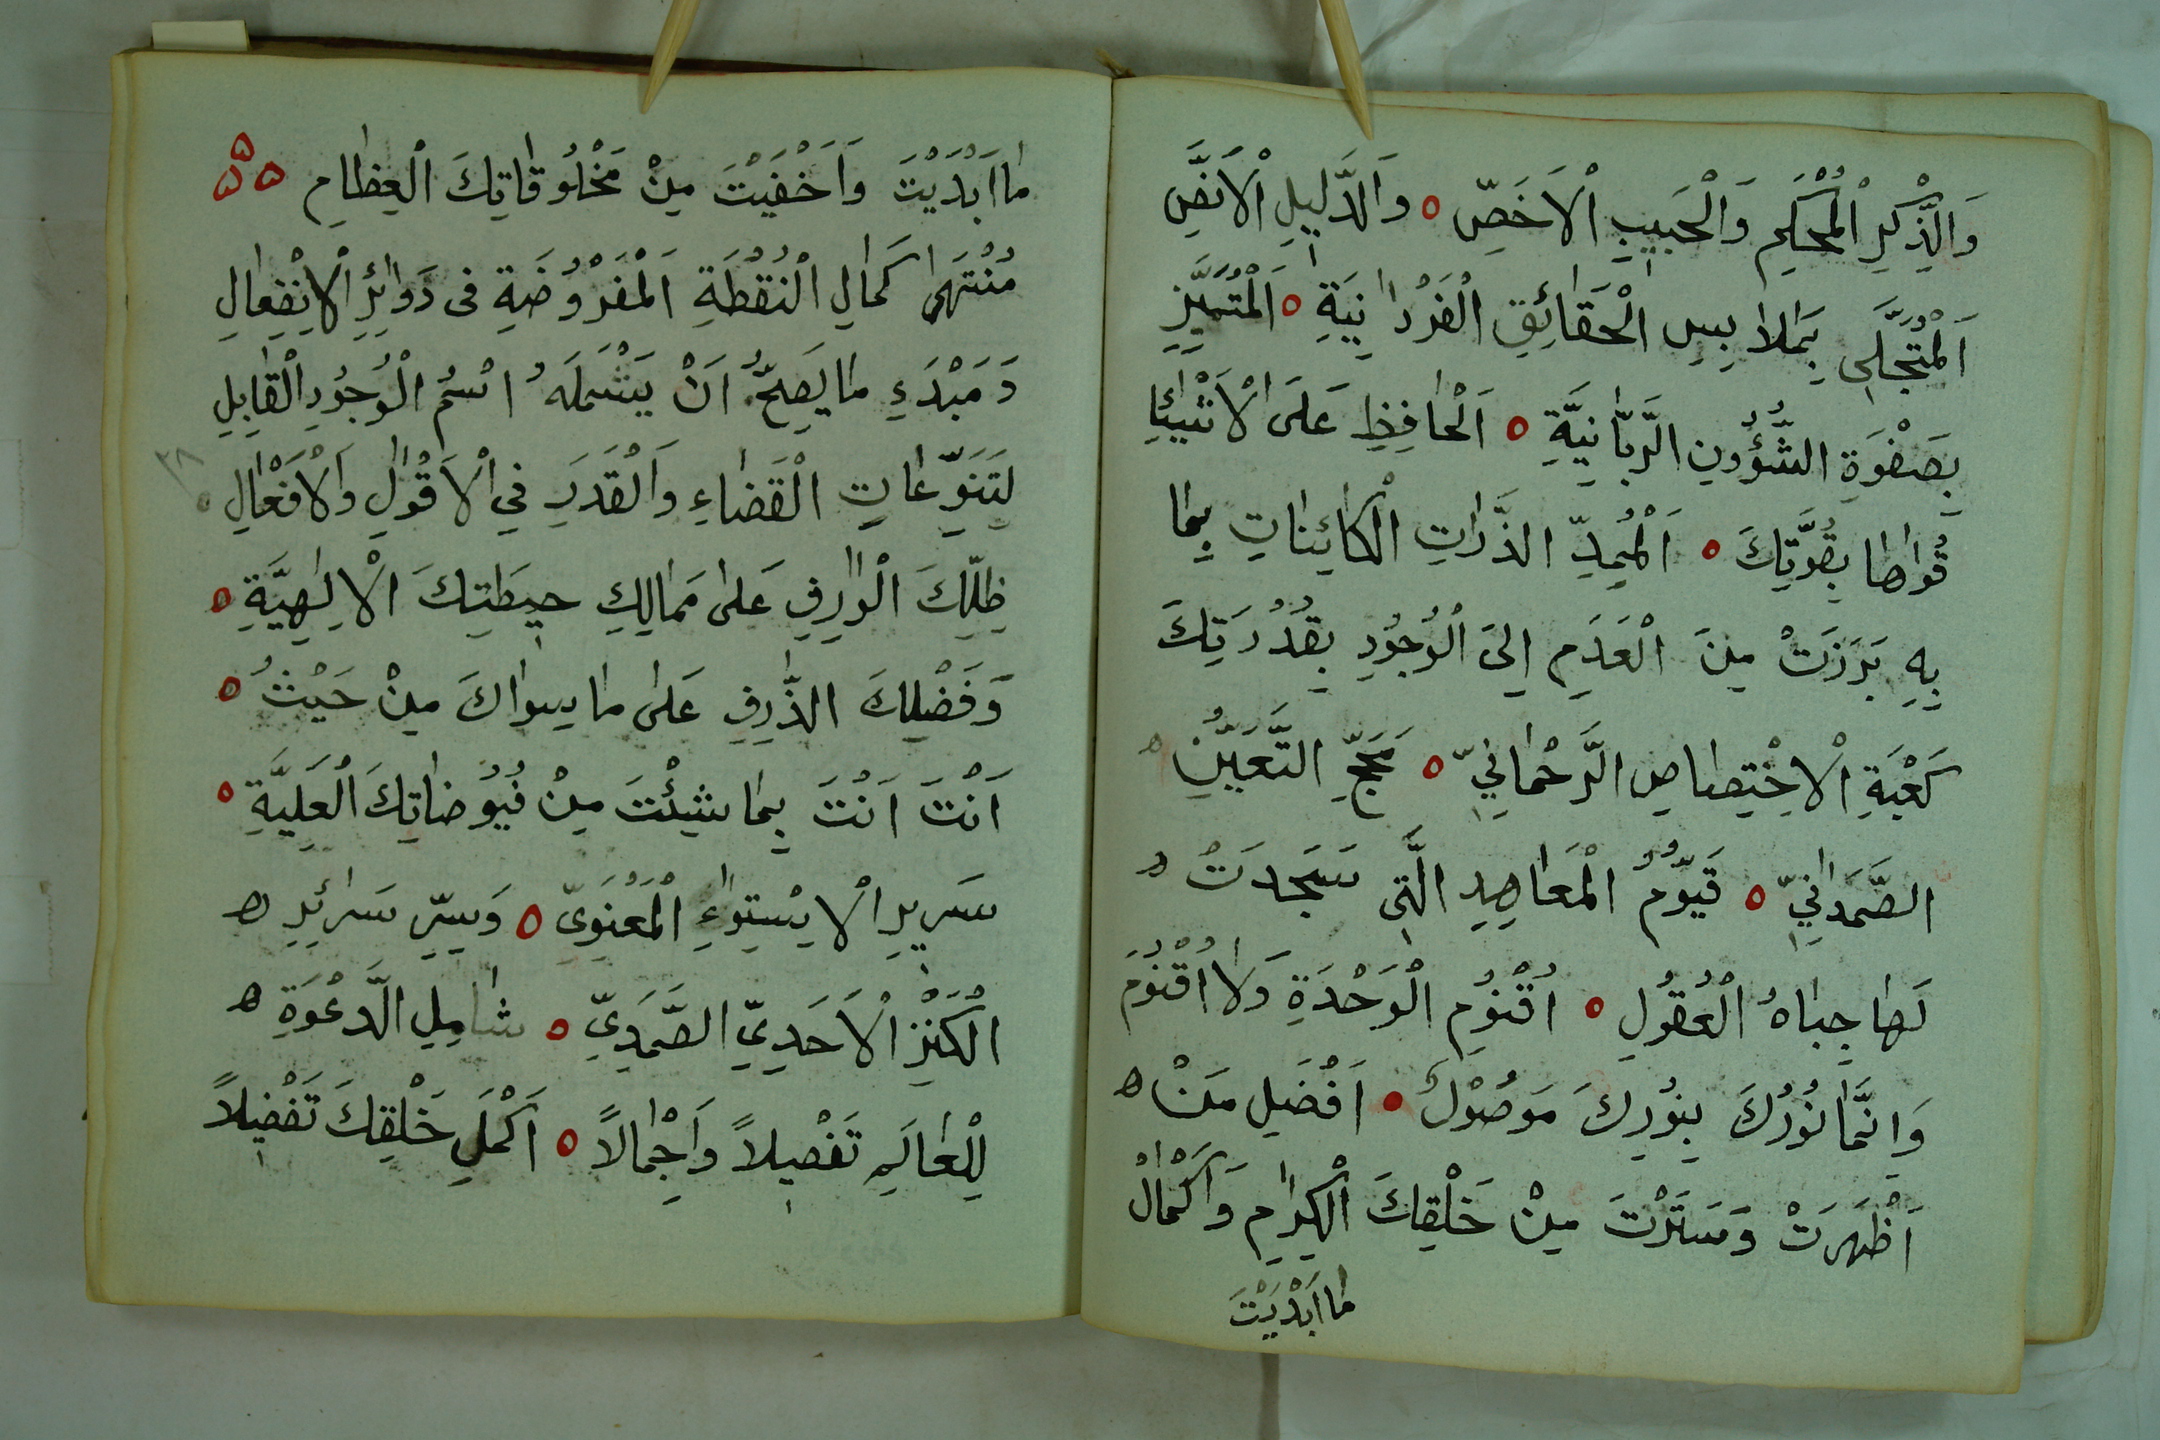 وَالذِّكْرِ الْمُحْكَمِ وَالْحَبِيبِ الْاَخَصِّ ه وَالدَّلِيلِ الْاَنَصِّ
اَلْمُتَجَلّٰى بِمَلَابِسِ الْحَقَائِقِ الْفَرْدَانِيَةِ ه اَلْمُتَمَيِّزِ
بِصَفْوَةِ الشُّؤُونِ الرَّبَّانِيَّةِ ه اَلْحَافِظِ عَلَى الْاَشْيَاءِ
قُوَاهَا بِقُوَّتِكَ ه اَلْمُمِدِّ الذَّرَّاتِ الْكَائِنَاتِ بِمَا
بِهِ بَرَزَتْ مِنَ الْعَدَمِ اِلَى الْوُجُودِ بِقُدْرَتِكَ
كَعْبَةِ الْاِخْتِصَاصِ الرَّحْمَانِيِّ ه مَحَجِّ التَّعَيُّنِ ه
الصَّمَدَانِيِّ ه قَيُّومُ الْمَعَاهِدِ الَّتِى سَجَدَتْ ه
لَهَا جِبَاهُ الْعُقُولِ ه اُقْنُومِ الْوَحْدَةِ وَلَا اُقْنُومَ
وَاِنَّمَا نُورُكَ بِنُورِكَ مَوْصُولٌ ه اَفْضَلِ مَنْ ه
اَظْهَرَتْ وَسَتَرْتَ مِنْ خَلْقِكَ الْكِرَامِ وَاَكْمَالْ
مَا اَبْدَيْتَ
مَا اَبْدَيْتَ وَاَخْفَيْتَ مِنْ مَخْلُوقَاتِكَ الْعِظَامِ ه ه ه
مُنْتَهَى كَمَالِ النُّقْطَةِ الْمَفْرُوضَةِ فِى دَوَائِرِ الْاِنْفِعَالِ
وَمَبْدَءِ مَا يَصِحُّ اَنْ يَشْمَلَهُ اسْمُ الْوُجُودِ الْقَابِلِ
لِتَنَوُّعَاتِ الْقَضَاءِ وَالْقَدَرِ فِي الْاَقْوَالِ وَالْاَفْعَالِ
ظِلِّكَ الْوَارِفِ عَلٰى مَمَالِكِ حِيطَتِكَ الْاِلٰهِيَّةِ ه
وَفَضْلِكَ الذَّارِفِ عَلٰى مَا سِوَاكَ مِنْ حَيْثُ ه
اَنْتَ اَنْتَ بِمَا شِئْتَ مِنْ فُيُوضَاتِكَ الْعَلِيَّةِ ه
سَرِيرِ الْاِسْتِوَاءِ الْمَعْنَوِيِّ ه وَسِرِّ سَرَائِرِ ه
الْكَنْزِ الْاَحَدِيِّ الصَّمَدِيِّ ه شَامِلِ الدَّعْوَةِ ه
لِلْعَالَمِ تَفْصِيلًا وَاِجْمَالًا ه اَكْمَلِ خَلْقِكَ تَفْضِيلًا